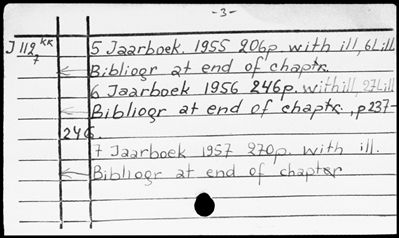 -3-
J 112 kk
7
5 Jaarboek. 1955 206p. with ill, 6 Lill.
Bibliogr at end of chaptr.
6 Jaarboek 1956 246p. with ill, 27 Lill
Bibliogr at end of chaptr., p 237-
246.
7 Jaarboek 1957 270p. with ill.
Bibliogr at end of chapter